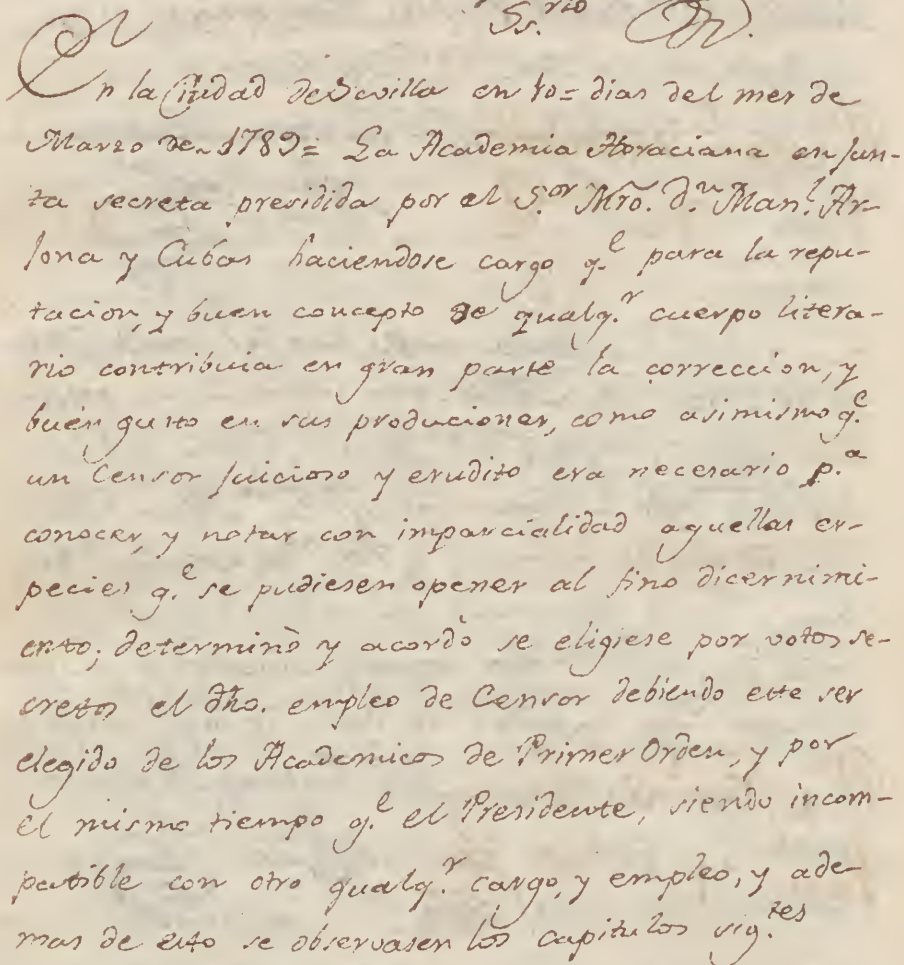 Ss.rio
En la Ciudad de Sevilla en 10= dias del mes de
Marzo de 1789= La Academia Horaciana en jun-
ta secreta presidida por el S.or Mro. d.n Man.l Ar-
jona y Cubas haciendose cargo q.e para la repu-
tacion, y buen concepto de qualq.r cuerpo litera-
rio contribuia en gran parte la correccion, y
buen gusto en sus produciones, como asimismo q.e
un Censor juicioso y erudito era necesario p.a
conocer, y notar con imparcialidad aquellas es-
pecies q.e se pudiesen opener al fino dicernimi-
ento; determinò y acordò se eligiese por votos se-
cretos el dho. empleo de Censor debiendo este ser
elegido de los Academicos de Primer Orden, y por
el mismo tiempo q.e el Presidente, siendo incom-
patible con otro qualq.r cargo, y empleo, y ade-
mas de esto se observasen los capitulos sig.tes